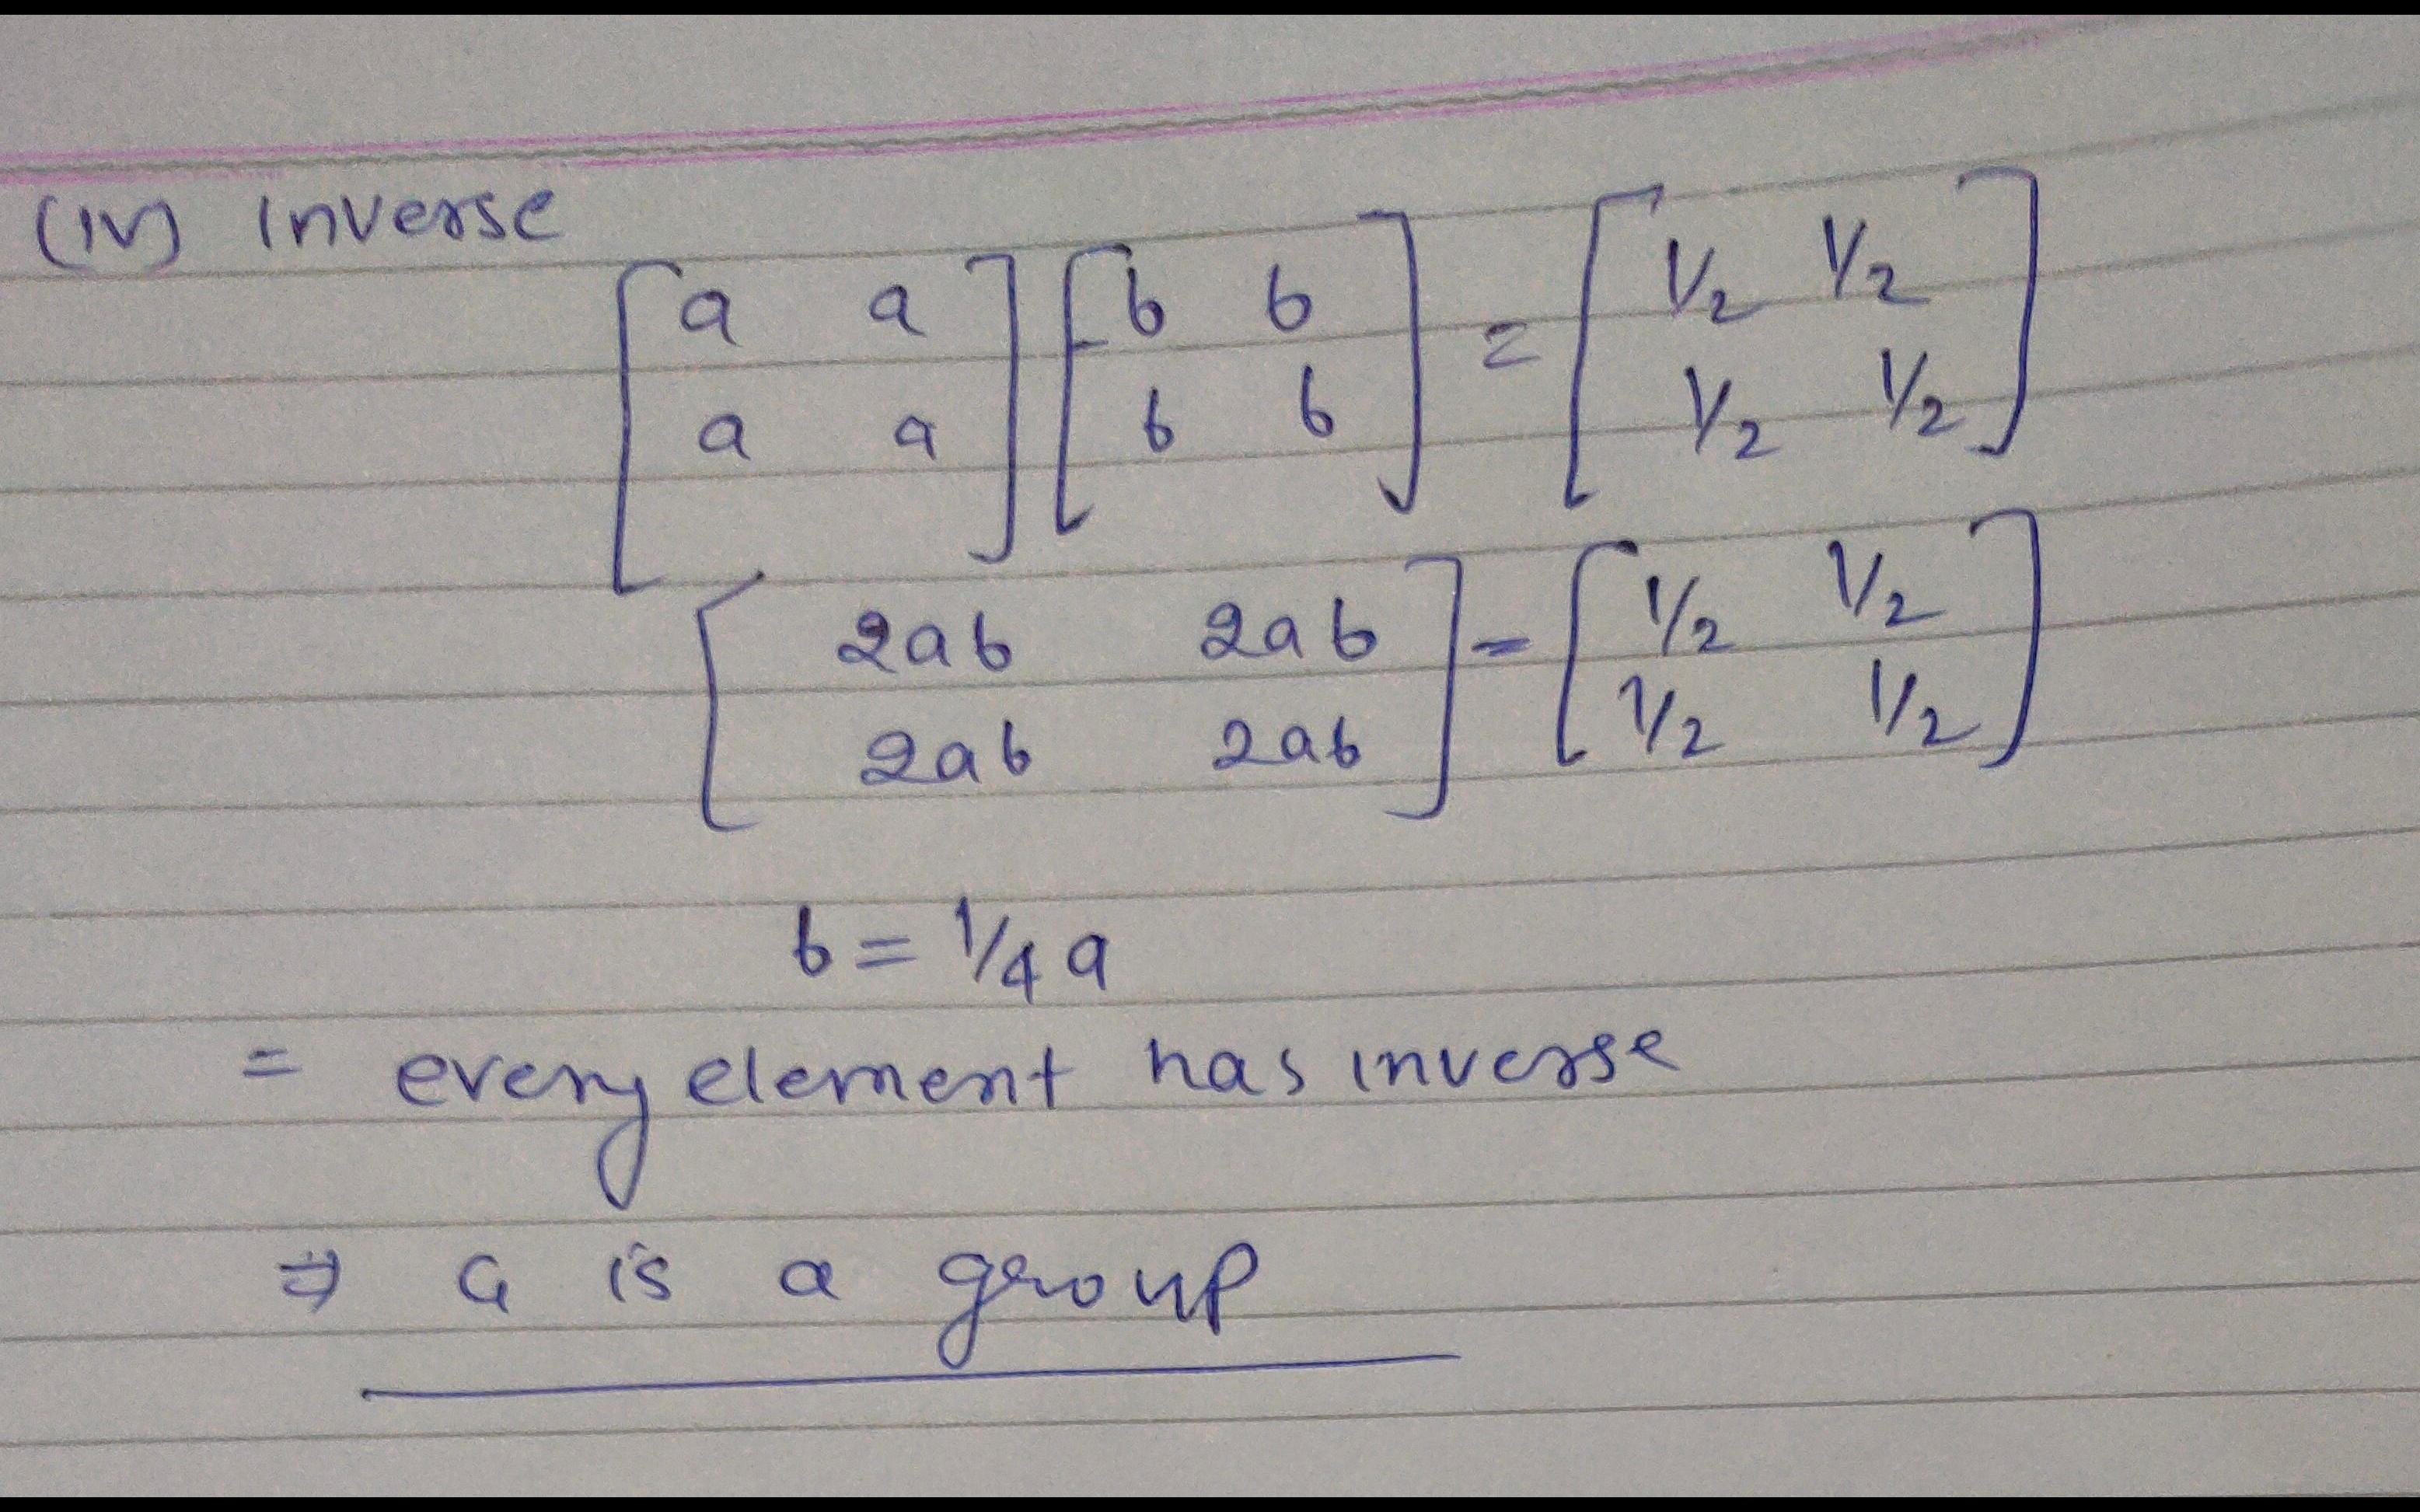 (iv) Inverse
[a a] [b b] = [1/2 1/2]
[a a] [b b] [1/2 1/2]
[2ab 2ab] = [1/2 1/2]
[2ab 2ab] [1/2 1/2]
b = 1/4 a
= every element has inverse
⇒ G is a group